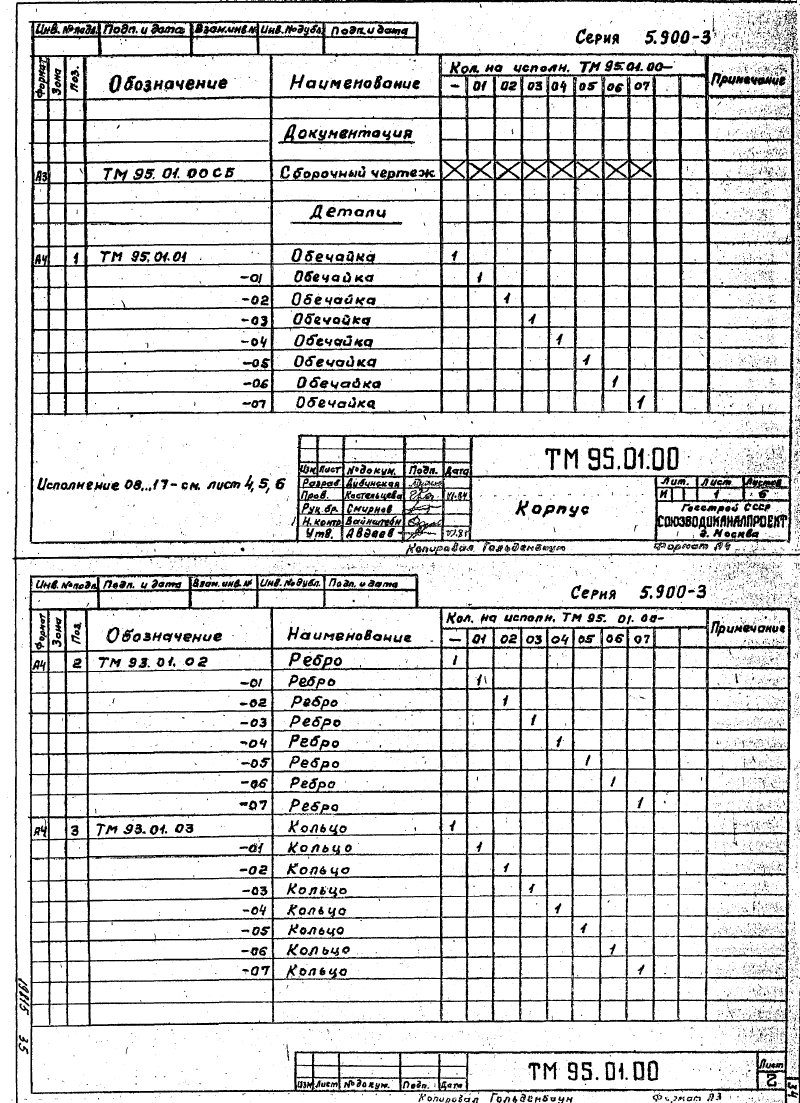 Инв. № подл. Подп. и дата Взам. инв. № Инв. № дубл. Подп. и дата
Серия 5.900-3
Формат Зона Поз. Обозначение Наименование Кол. на исполн. ТМ 95.01.00- Примечание
- 01 02 03 04 05 06 07
Документация
А3 ТМ 95.01.00СБ Сборочный чертеж X X X X X X X X
Детали
А4 1 ТМ 95.01.01 Обечайка 1
-01 Обечайка 1
-02 Обечайка 1
-03 Обечайка 1
-04 Обечайка 1
-05 Обечайка 1
-06 Обечайка 1
-07 Обечайка 1
Исполнение 08...17 - см. лист 4, 5, 6
ТМ 95.01.00
Изм Лист № докум. Подп. Дата
Разраб. Дубинская
Пров. Костельцева
Рук. бр. Смирнов
Н. контр Вайнштейн
Утв. Авдеев
Корпус
Лит. Лист Листов
И 1 6
Госстрой СССР
СОЮЗВОДОКАНАЛПРОЕКТ
г. Москва
Копировал Гольденбаум Формат А4
Инв. № подл. Подп. и дата Взам. инв. № Инв. № дубл. Подп. и дата
Серия 5.900-3
Формат Зона Поз. Обозначение Наименование Кол. на исполн. ТМ 95. 01. 00- Примечание
- 01 02 03 04 05 06 07
А4 2 ТМ 93.01.02 Ребро 1
-01 Ребро 1
-02 Ребро 1
-03 Ребро 1
-04 Ребро 1
-05 Ребро 1
-06 Ребро 1
-07 Ребро 1
А4 3 ТМ 93.01.03 Кольцо 1
-01 Кольцо 1
-02 Кольцо 1
-03 Кольцо 1
-04 Кольцо 1
-05 Кольцо 1
-06 Кольцо 1
-07 Кольцо 1
35
ТМ 95.01.00
Лист
2
Изм Лист № докум. Подп. Дата
34
Копировал Гольденбаум Формат А3